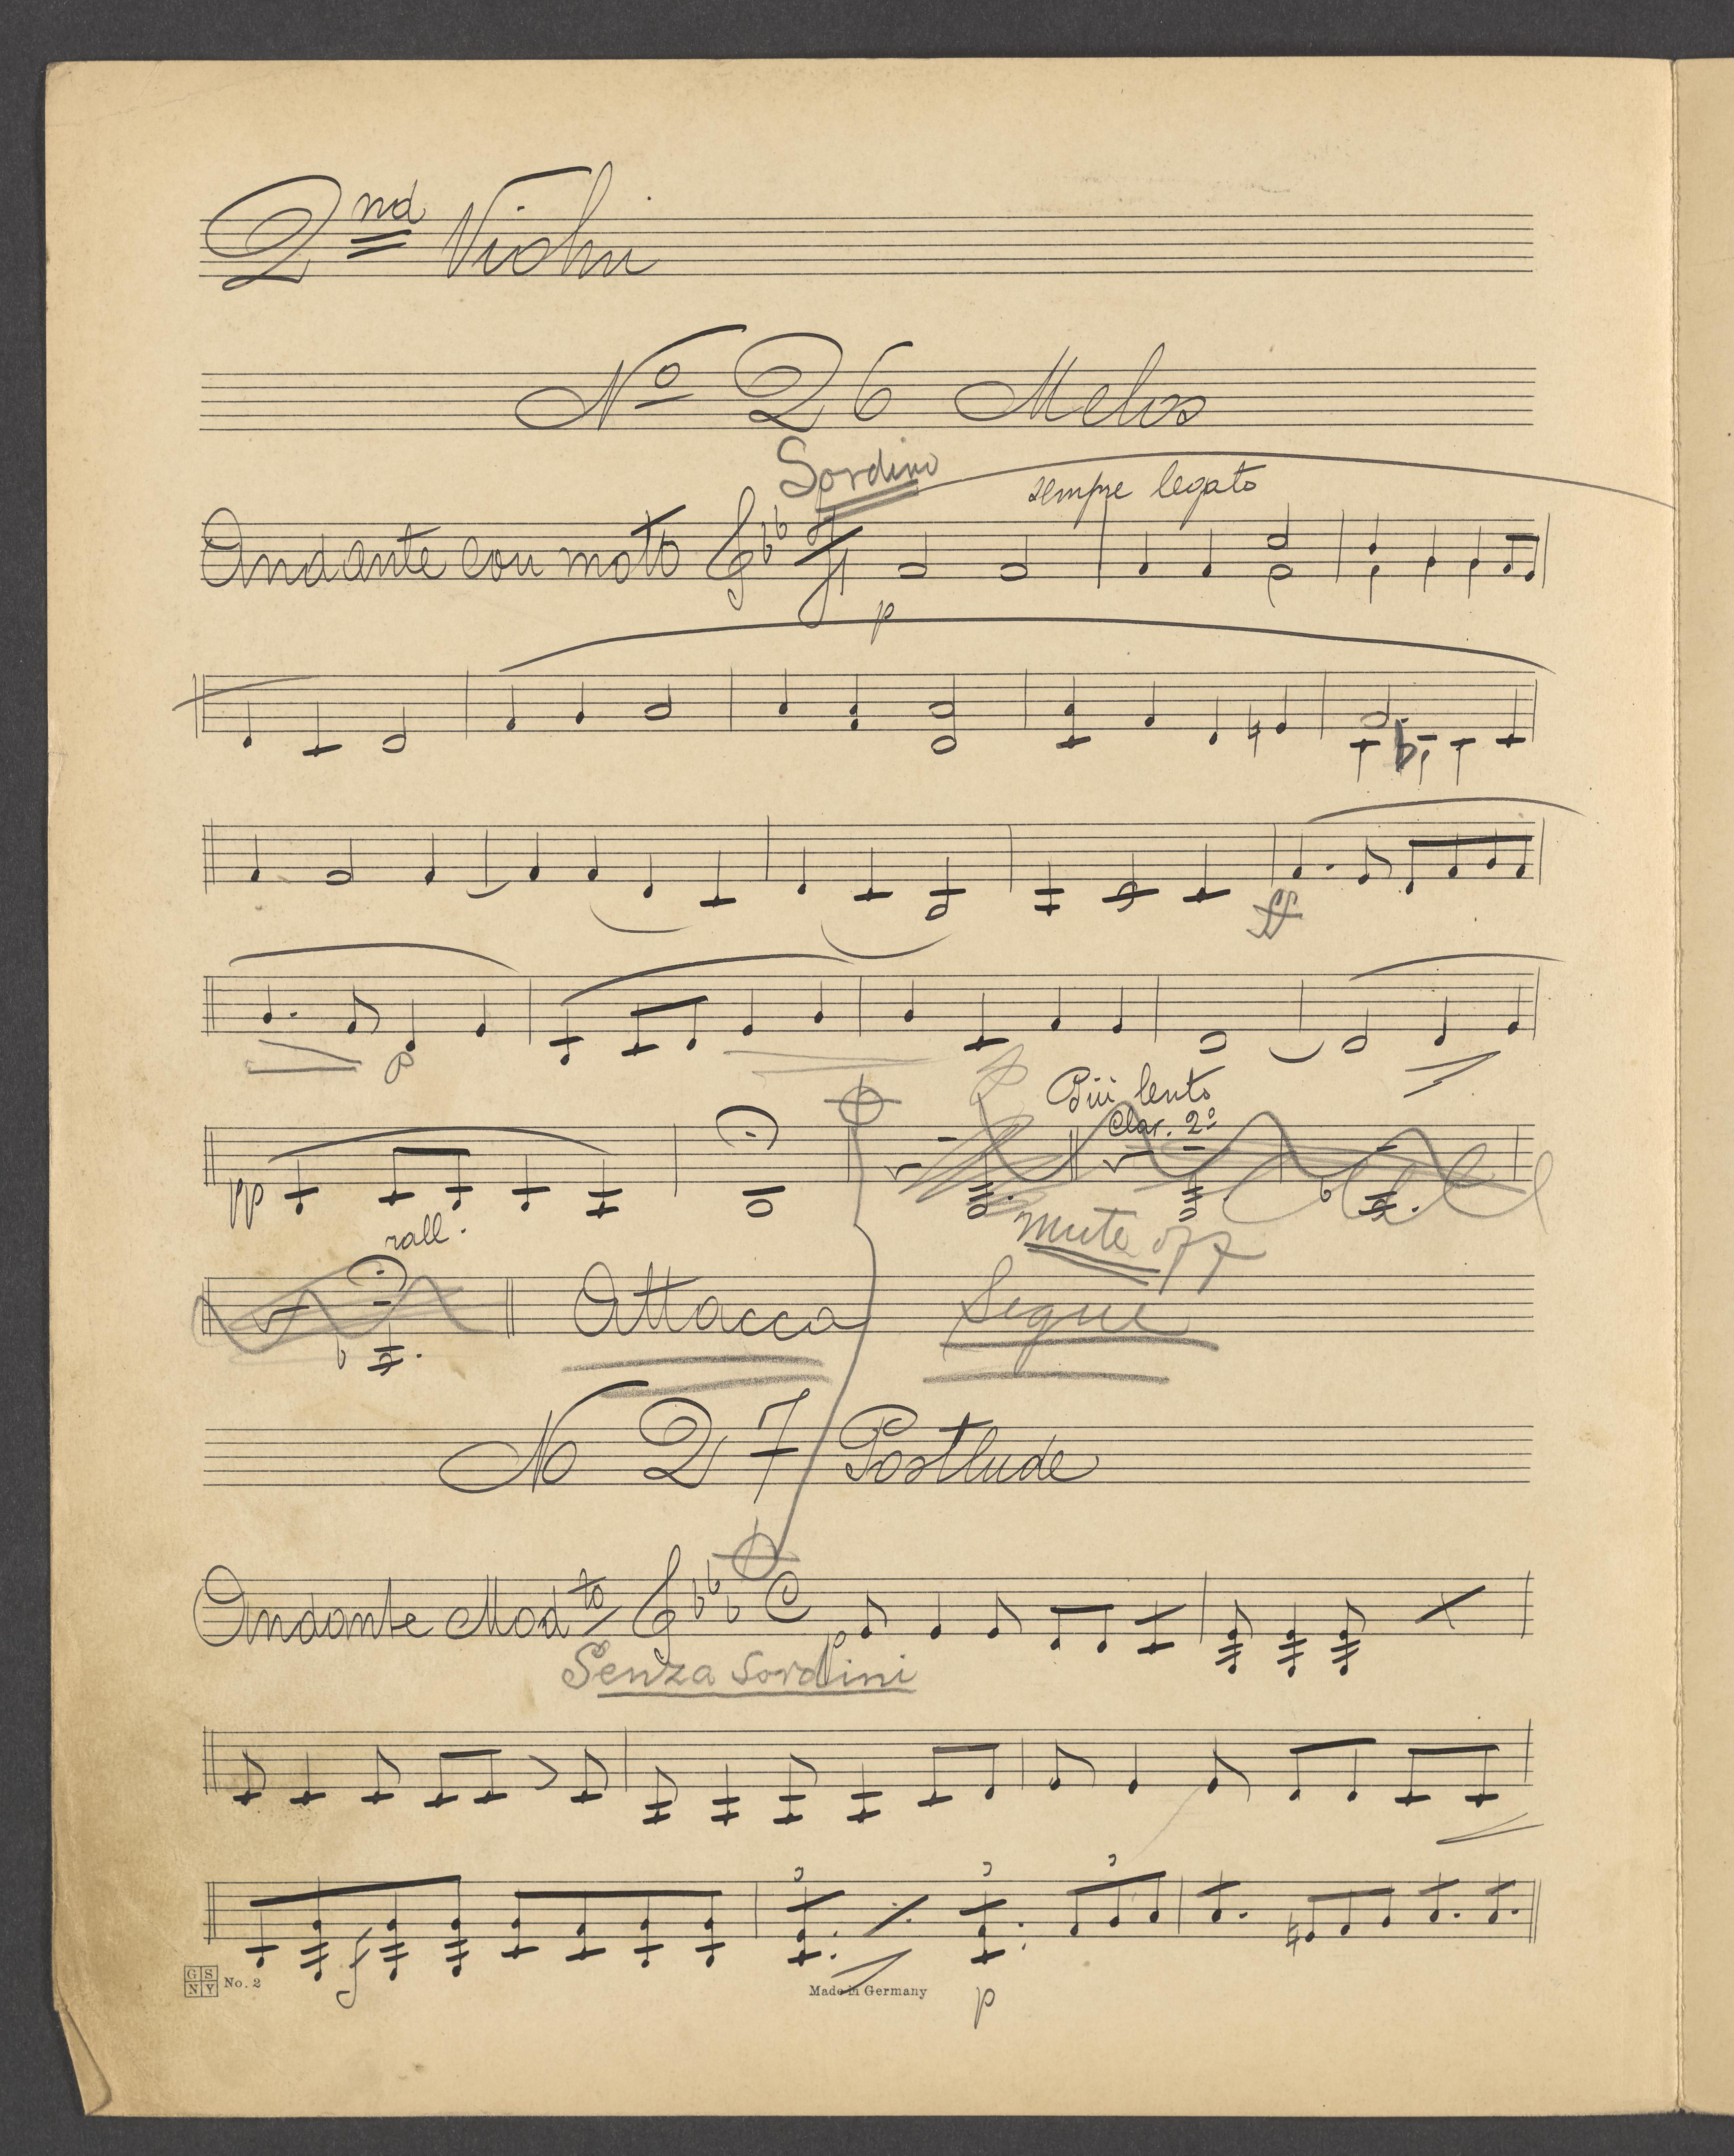 2nd Violin
No 26 Melos
Sordini
sempre legato
Andante con moto
p
ff
p
Più lento
Clar. 2o
pp
rall.
mute off
Attacca Segue
No 27 Postlude
Andante Modto C
p
Senza Sordini
3 3 3
f
p
GS NY No. 2
Made in Germany